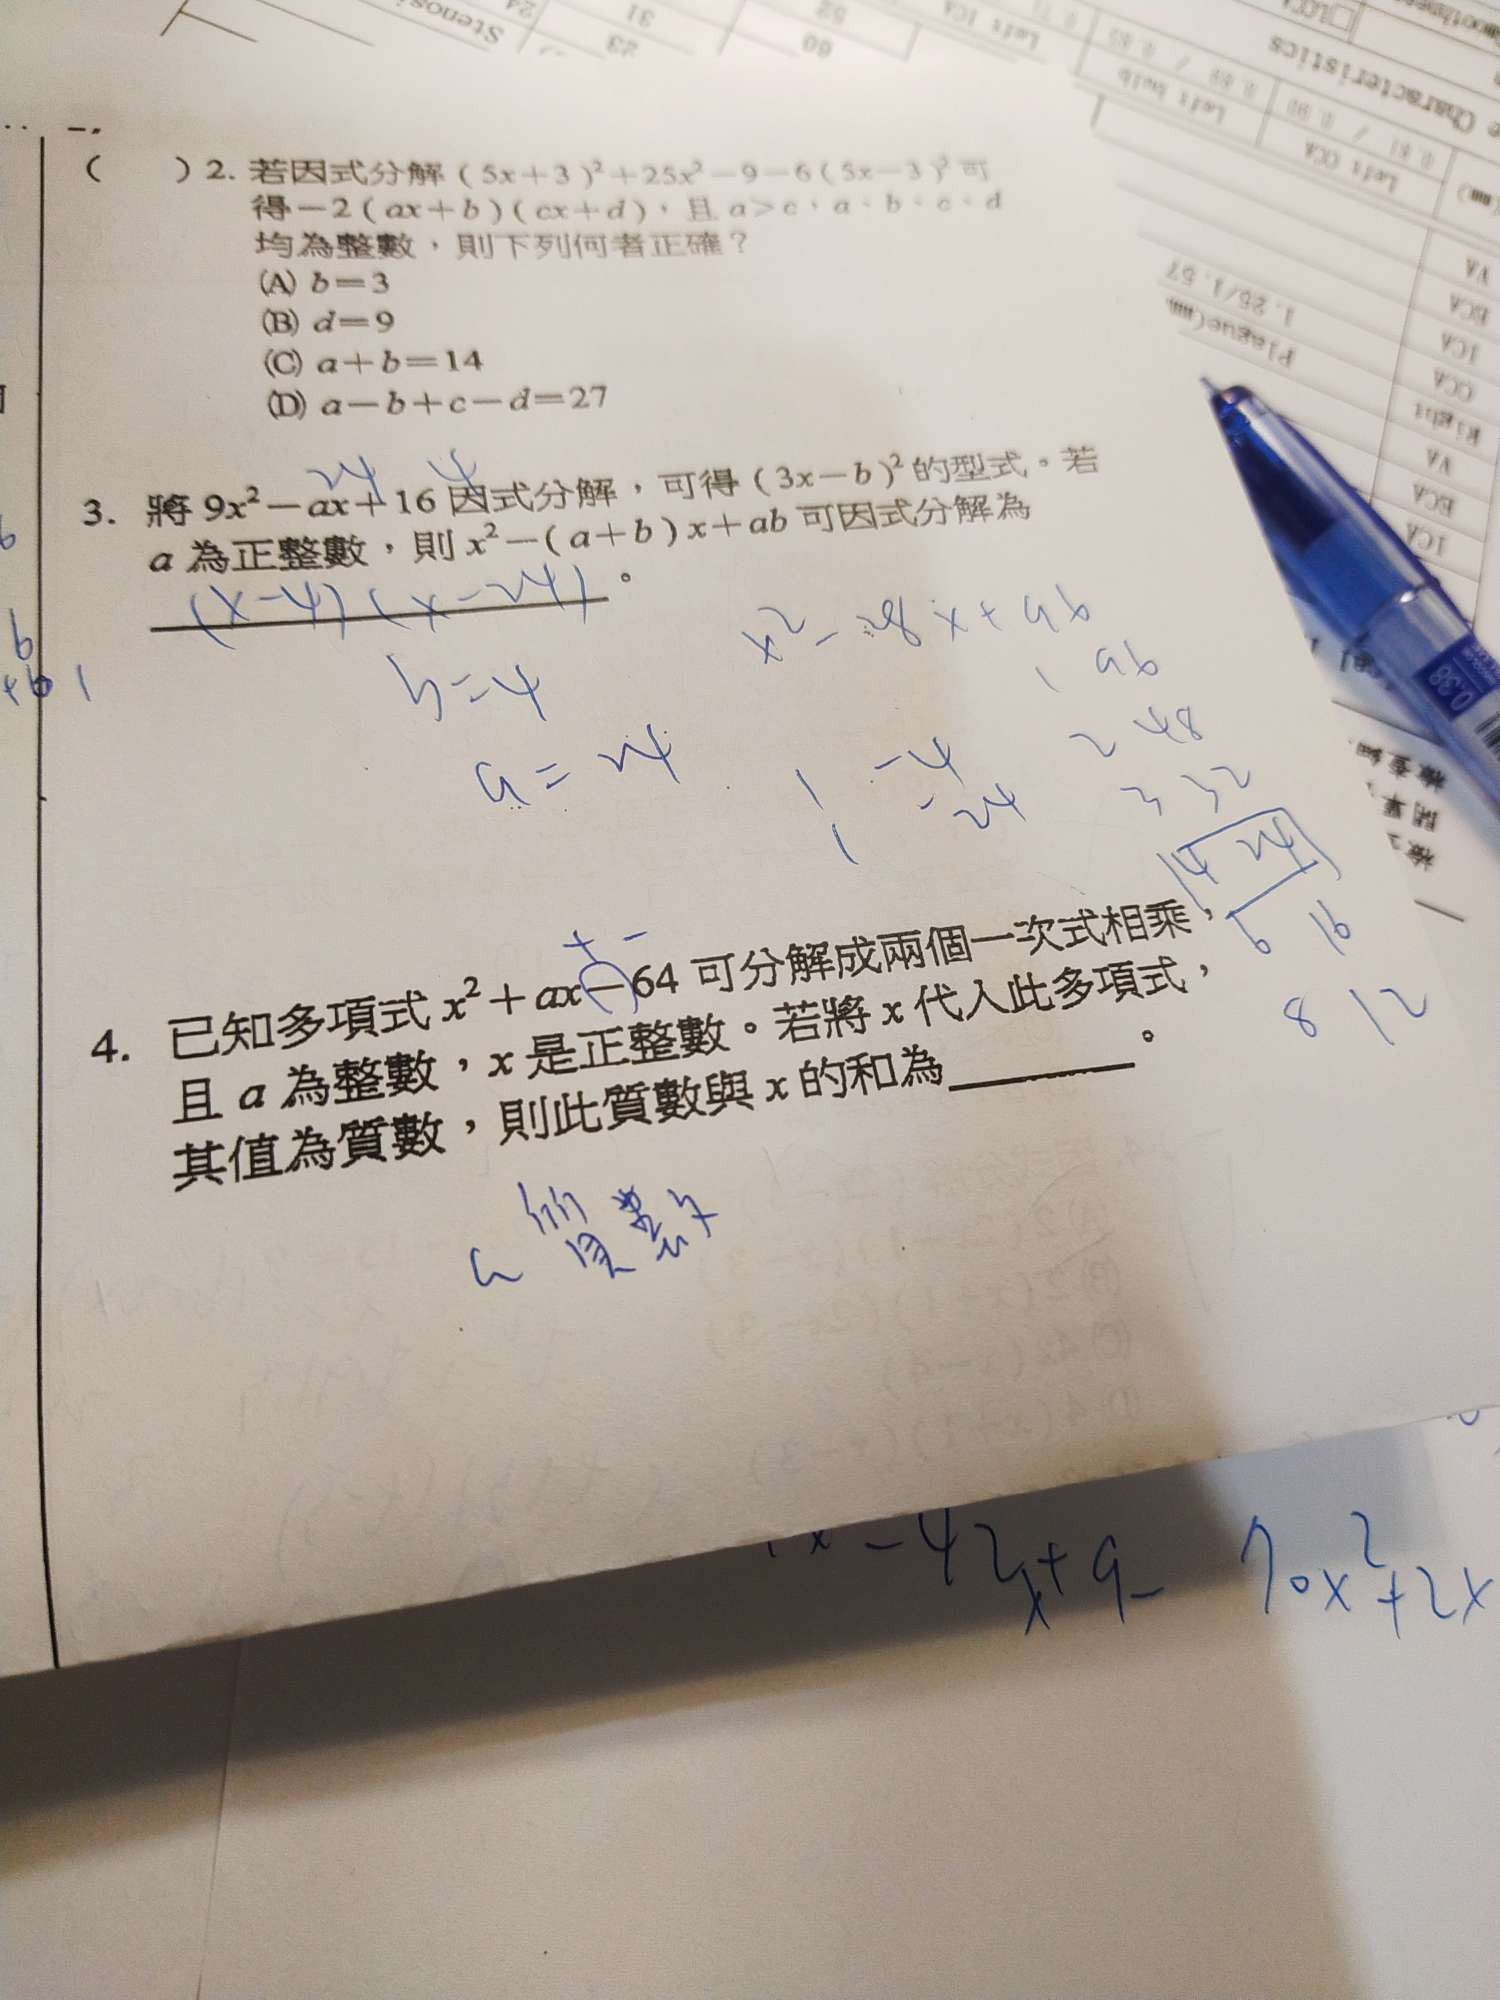 Stenosi
24
31
23
52
60
Left ICA
Left bulb
Left CCA
e Characteristics
(mm)
VA
ECA
ICA
CCA
Right
VA
ECA
ICA
1.25/1.57
Plague(mm
0.38
( )2. 若因式分解(5x+3)²+25x²-9-6(5x-3)²可
得-2(ax+b)(cx+d),且a>c、a、b、c、d
均為整數,則下列何者正確?
(A) b=3
(B) d=9
(C) a+b=14
(D) a-b+c-d=27
24 4
3. 將9x²-ax+16因式分解,可得(3x-b)²的型式。若
a為正整數,則x²-(a+b)x+ab可因式分解為
(x-4)(x-24)。
x²-28x+96
b=4
1 96
a=24
2 48
1 -4
3 32
1 -24
4 24
6 16
8 12
+ -
4. 已知多項式x²+ax-64可分解成兩個一次式相乘,
且a為整數,x是正整數。若將x代入此多項式,
其值為質數,則此質數與x的和為 。
a 質數
x-42x+9- 70x²+2x